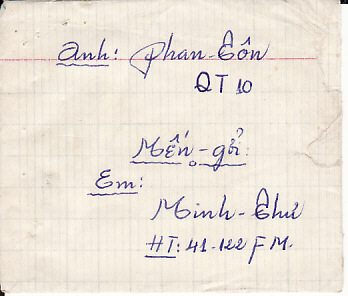 Anh: Phan-Tôn
QT 10
Mến-gởi:
Em:
Minh-Thư
HT: 41-122 FM.